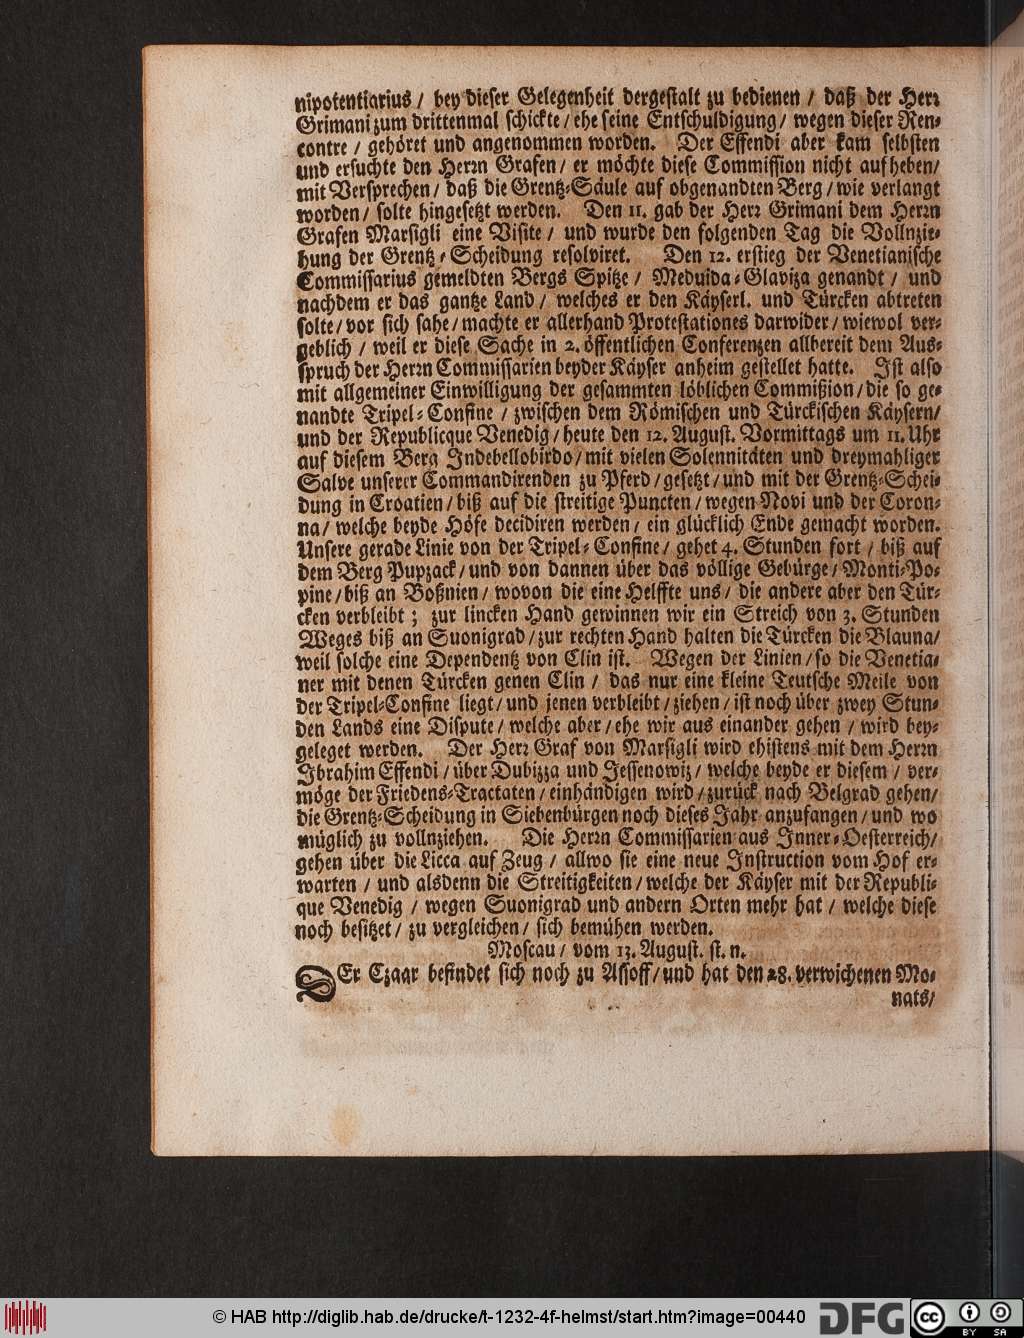 nipotentiarius / bey dieser Gelegenheit dergestalt zu bedienen / daß der Herr
Grimani zum drittenmal schickte / ehe seine Entschuldigung / wegen dieser Ren-
contre / gehöret und angenommen worden. Der Effendi aber kam selbsten
und ersuchte den Herrn Grafen / er möchte diese Commission nicht auf heben /
mit Versprechen / daß die Grentz-Säule auf obgenandten Berg / wie verlangt
worden / solte hingesetzt werden. Den 11. gab der Herr Grimani dem Herrn
Grafen Marsigli eine Visite / und wurde den folgenden Tag die Vollnzie-
hung der Grentz-Scheidung resolviret. Den 12. erstieg der Venetianische
Commissarius gemeldten Bergs Spitze / Meduida-Glaviza genandt / und
nachdem er das gantze Land / welches er den Käyserl. und Türcken abtreten
solte / vor sich sahe / machte er allerhand Protestationes darwider / wiewol ver-
geblich / weil er diese Sache in 2. öffentlichen Conferenzen allbereit dem Aus-
spruch der Herrn Commissarien beyder Käyser anheim gestellet hatte. Ist also
mit allgemeiner Einwilligung der gesammten löblichen Commißion / die so ge-
nandte Tripel-Confine / zwischen dem Römischen und Türckischen Käysern /
und der Republicque Venedig / heute den 12. August. Vormittags um 11. Uhr
auf diesem Berg Indebellobirdo / mit vielen Solennitäten und dreymahliger
Salve unserer Commandirenden zu Pferd / gesetzt / und mit der Grentz-Schei-
dung in Croatien / biß auf die streitige Puncten / wegen Novi und der Coron-
na / welche beyde Höfe decidiren werden / ein glücklich Ende gemacht worden.
Unsere gerade Linie von der Tripel-Confine / gehet 4. Stunden fort / biß auf
dem Berg Pupzack / und von dannen über das völlige Gebürge / Monti-Po-
pine / biß an Boßnien / wovon die eine Helffte uns / die andere aber den Tür-
cken verbleibt ; zur lincken Hand gewinnen wir ein Streich von 3. Stunden
Weges biß an Suonigrad / zur rechten Hand halten die Türcken die Blauna /
weil solche eine Dependentz von Clin ist. Wegen der Linien / so die Venetia-
ner mit denen Türcken genen Clin / das nur eine kleine Teutsche Meile von
der Tripel-Confine liegt / und jenen verbleibt / ziehen / ist noch über zwey Stun-
den Lands eine Dispute / welche aber / ehe wir aus einander gehen / wird bey-
geleget werden. Der Herr Graf von Marsigli wird ehistens mit dem Herrn
Ibrahim Effendi / über Dubizza und Jessenowiz / welche beyde er diesem / ver-
möge der Friedens-Tractaten / einhändigen wird / zurück nach Belgrad gehen /
die Grentz-Scheidung in Siebenbürgen noch dieses Jahr anzufangen / und wo
müglich zu vollnziehen. Die Herrn Commissarien aus Inner-Oesterreich /
gehen über die Licca auf Zeug / allwo sie eine neue Instruction vom Hof er-
warten / und alsdenn die Streitigkeiten / welche der Käyser mit der Republi-
que Venedig / wegen Suonigrad und andern Orten mehr hat / welche diese
noch besitzet / zu vergleichen / sich bemühen werden.
Moscau / vom 13. August. st. n.
DEr Czaar befindet sich noch zu Assoff / und hat den 28. verwichenen Mo-
nats /
© HAB http://diglib.hab.de/drucke/t-1232-4f-helmst/start.htm?image=00440
DFG
cc BY SA